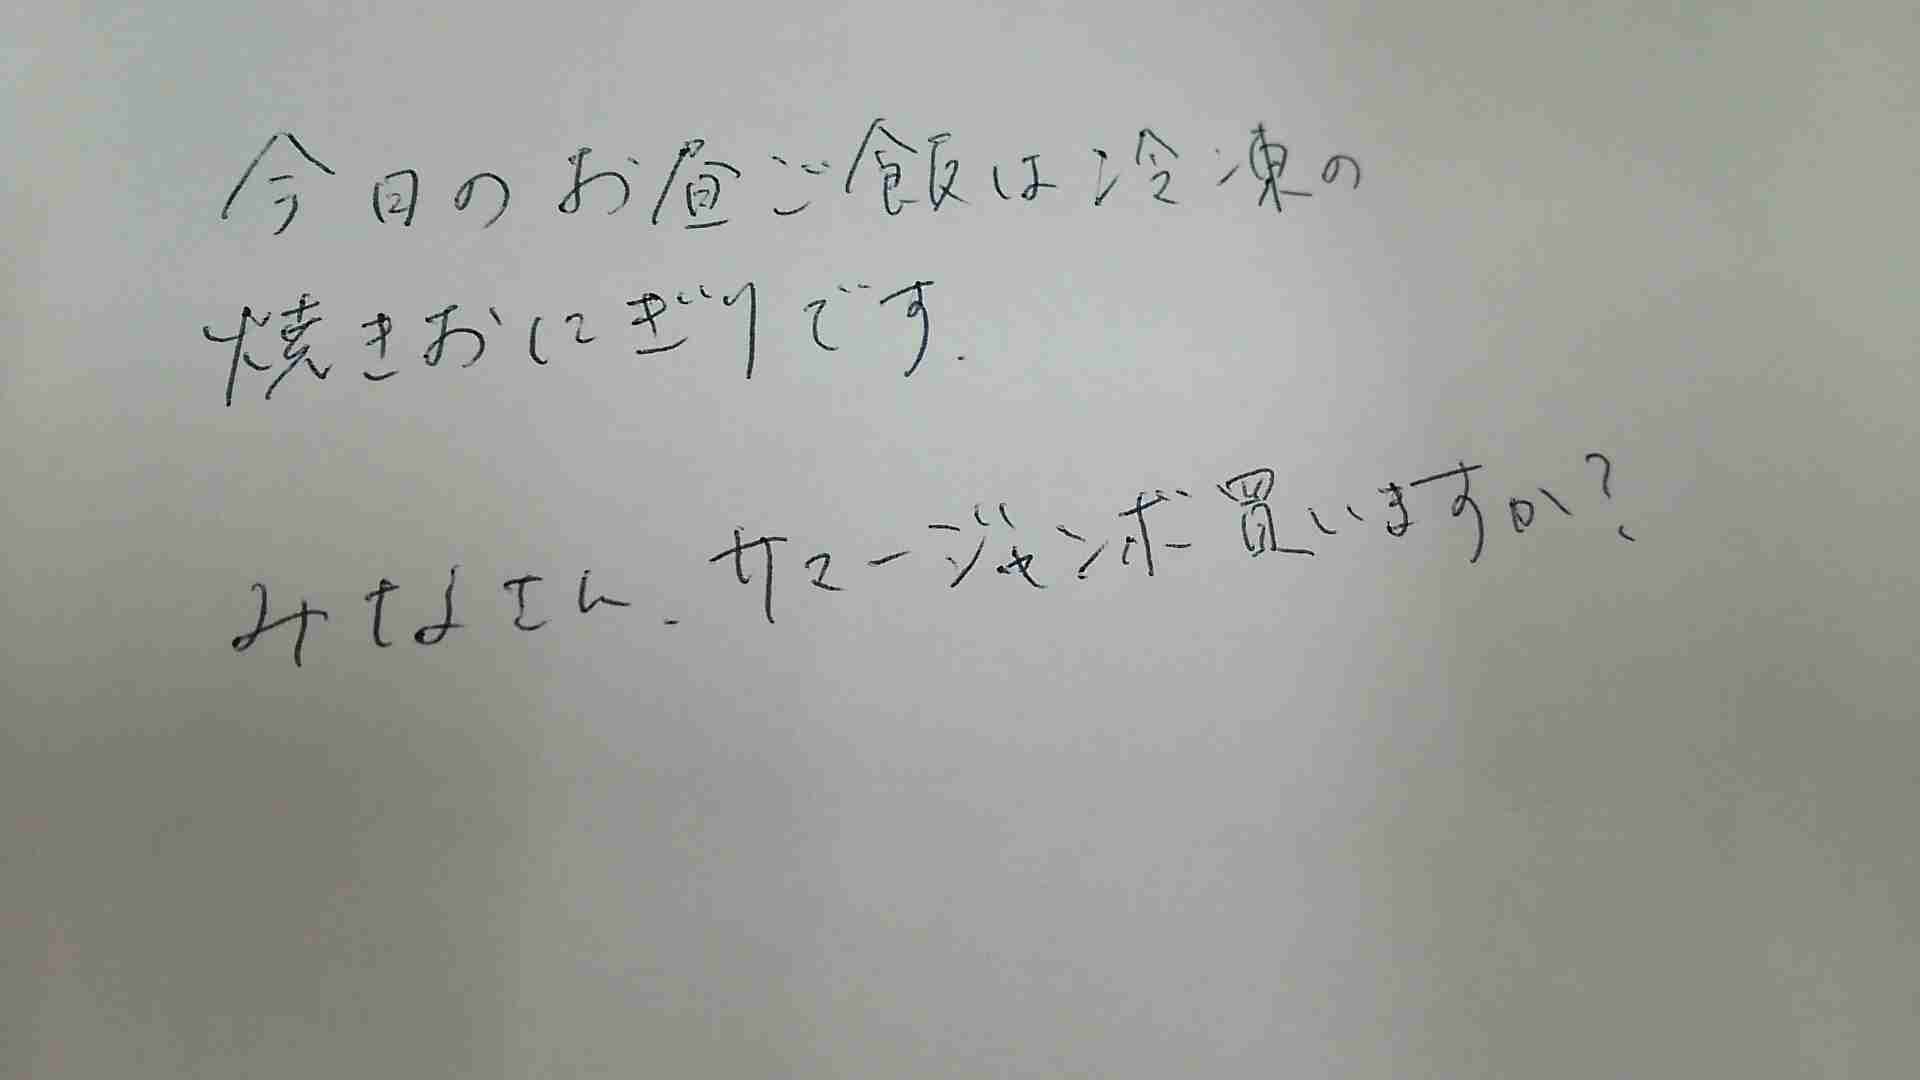 今日のお昼ご飯は冷凍の
焼きおにぎりです.
みなさん、サマージャンボ買いますか?